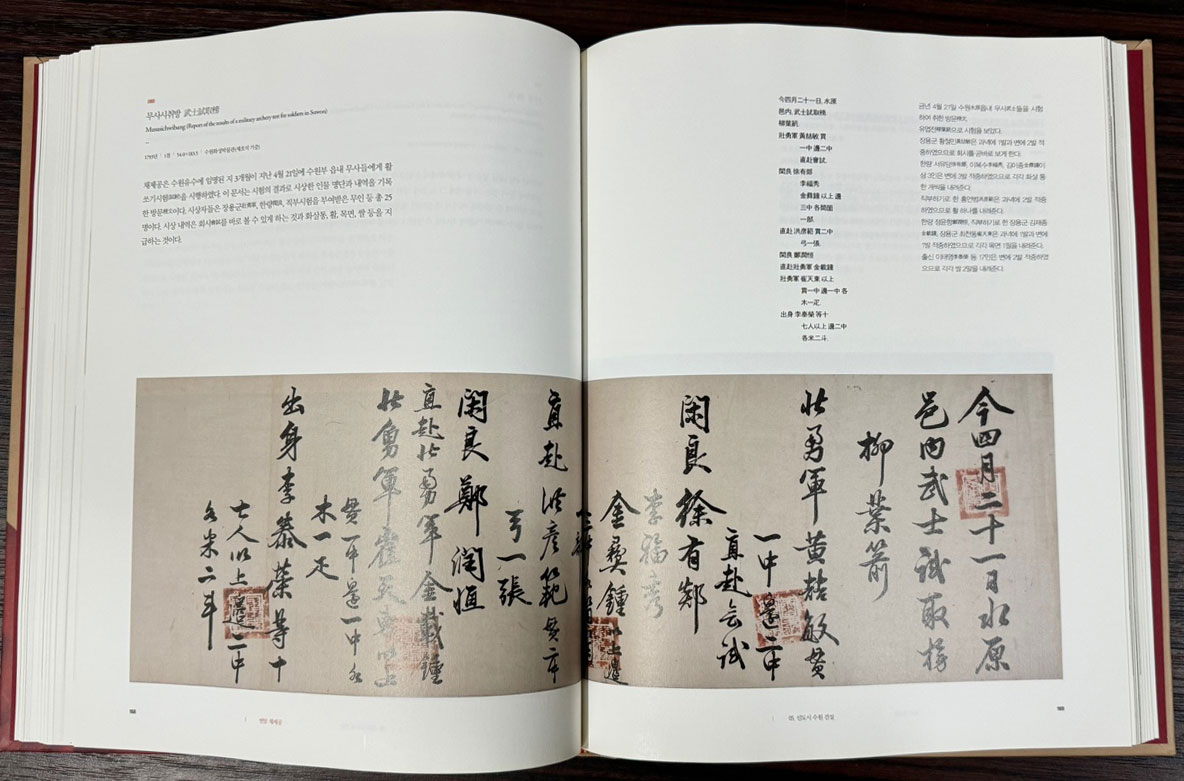 무사시취방 武士試取榜
Musasichwibang (Report of the results of a military archery test for soldiers in Suwon)
1793년 | 1점 | 54.6×183.5 | 수원화성박물관(채호석 기증)
채제공은 수원유수에 임명된 지 3개월이 지난 4월 21일에 수원부 읍내 무사들에게 활
쏘기시험을 시행하였다. 이 문서는 시험의 결과로 시상한 인물 명단과 내역을 기록
한 방문이다. 시상자들은 장용군, 한량, 직부시험을 부여받은 무인 등 총 25
명이다. 시상 내역은 회시를 바로 볼 수 있게 하는 것과 화살통, 활, 목면, 쌀 등을 지
급하는 것이다.
今四月二十一日, 水原
邑內, 武士試取榜.
柳葉箭.
壯勇軍 黃喆敏 貫
一中 邊二中
直赴會試.
閑良 徐有鄈
李福秀
金彛鍾 以上 邊
三中 各筒箇
一部.
直赴 洪彦範 貫二中
弓一張.
閑良 鄭潤恒
直赴壯勇軍 金載鍾
壯勇軍 崔天東 以上
貫一中 邊一中 各
木一疋.
出身 李泰榮 等十
七人以上 邊二中
各米二斗.
금년 4월 21일 수원읍내 무사들을 시험
하여 취한 방문.
유엽전으로 시험을 보았다.
장용군 황철민은 과녁에 1발과 변에 2발 적
중하였으므로 회시를 곧바로 보게 한다.
한량 서유, 이복수, 김이종이
상 3인은 변에 2발 적중하였으므로 각각 화살 통
한 개씩을 내려준다.
직부하기로 한 홍언범은 과녁에 2발 적중
하였으므로 활 하나를 내려준다.
한량 정윤항, 직부하기로 한 장용군 김재종
, 장용군 최천동은 과녁에 1발과 변에
1발 적중하였으므로 각각 목면 1필을 내려준다.
출신 이태영 등 17인은 변에 2발 적중하였
으므로 각각 쌀 2말을 내려준다.
今四月二十一日水原
邑內武士試取榜
柳葉箭
壯勇軍黃喆敏貫
一中邊二中
直赴會試
閑良徐有鄈
李福秀
金彛鍾以上邊
直赴洪彦範貫二中
弓一張
閑良鄭潤恒
直赴壯勇軍金載鍾
壯勇軍崔天東以上
貫一中邊一中各
木一疋
出身李泰榮等十
七人以上邊二中
各米二斗
번암 채제공